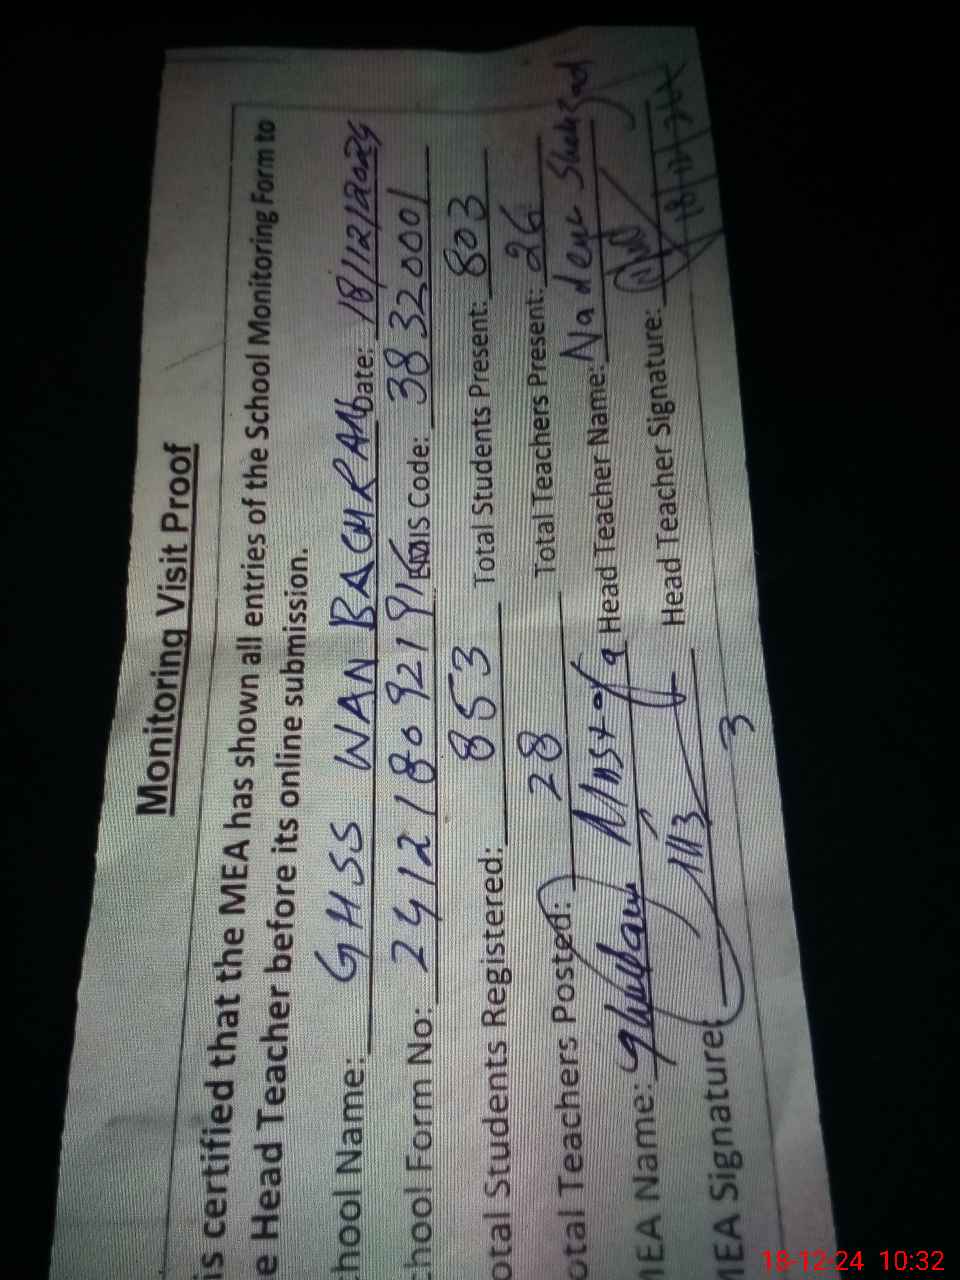 Monitoring Visit Proof
is certified that the MEA has shown all entries of the School Monitoring Form to
e Head Teacher before its online submission.
chool Name: GHSS WAN BACHRAN Date: 18/12/2024
chool Form No: 2412180921916 EMIS Code: 38320001
otal Students Registered: 853 Total Students Present: 803
otal Teachers Posted: 28 Total Teachers Present: 26
MEA Name: Ghulam Mustafa Head Teacher Name: Nadeem Shahzad
MEA Signature: Head Teacher Signature:
18/12/24
3
18-12-24 10:32